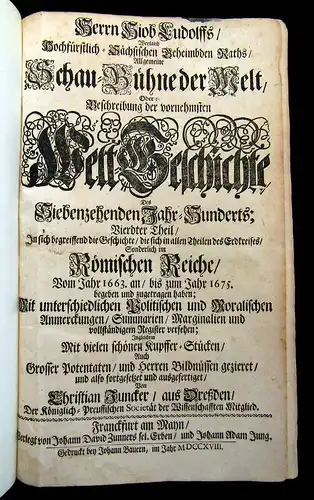 Herrn Hiob Ludolffs/
Weyland
Hochfürstlich-Sächsischen Geheimbden Raths/
Allgemeine
Schau-Bühne der Welt/
Oder:
Beschreibung der vornehmsten
Welt-Geschichte/
Des
Siebenzehenden Jahr-Hunderts;
Vierdter Theil/
In sich begreiffend die Geschichte/ die sich in allen Theilen des Erdkreises/
Sonderlich im
Römischen Reiche/
Vom Jahr 1663. an/ bis zum Jahr 1675.
begeben und zugetragen haben;
Mit unterschiedlichen Politischen und Moralischen
Anmerckungen/ Summarien/ Marginalien und
vollständigem Register versehen;
Ingleichen
Mit vielen schönen Kupffer-Stücken/
Auch
Grosser Potentaten/ und Herren Bildnüssen gezieret/
und also fortgesetzet und ausgefertiget/
Von
Christian Juncker/ aus Dreßden/
Der Königlich-Preussischen Societät der Wissenschafften Mitglied.
Franckfurt am Mayn/
Verlegt von Johann David Zunners sel. Erben/ und Johann Adam Jung.
Gedruckt bey Johann Bauern, im Jahr MDCCXVIII.